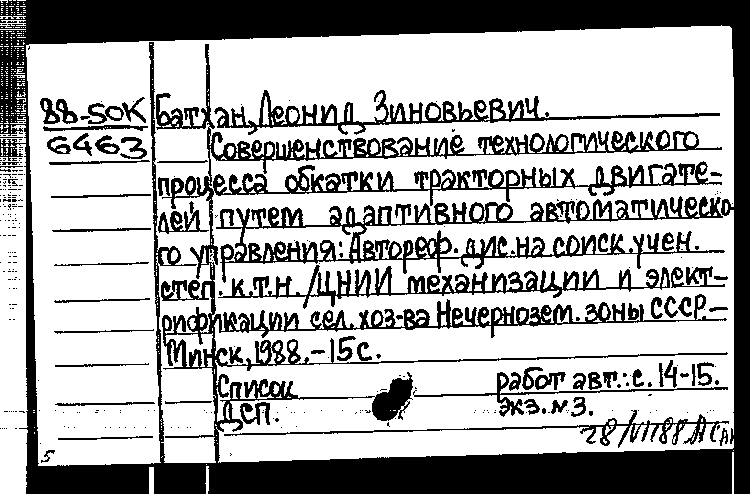 88-50К Батхан, Леонид Зиновьевич.
6463 Совершенствование технологического
процесса обкатки тракторных двигате-
лей путем адаптивного автоматическо-
го управления: Автореф. дис. на соиск. учен.
степ. к.т.н. /ЦНИИ механизации и элект-
рификации сел. хоз-ва Нечернозем. зоны СССР.–
Минск, 1988.–15с.
Список работ авт.: с. 14-15.
ДСП. экз. №3.
28/VII 88
5